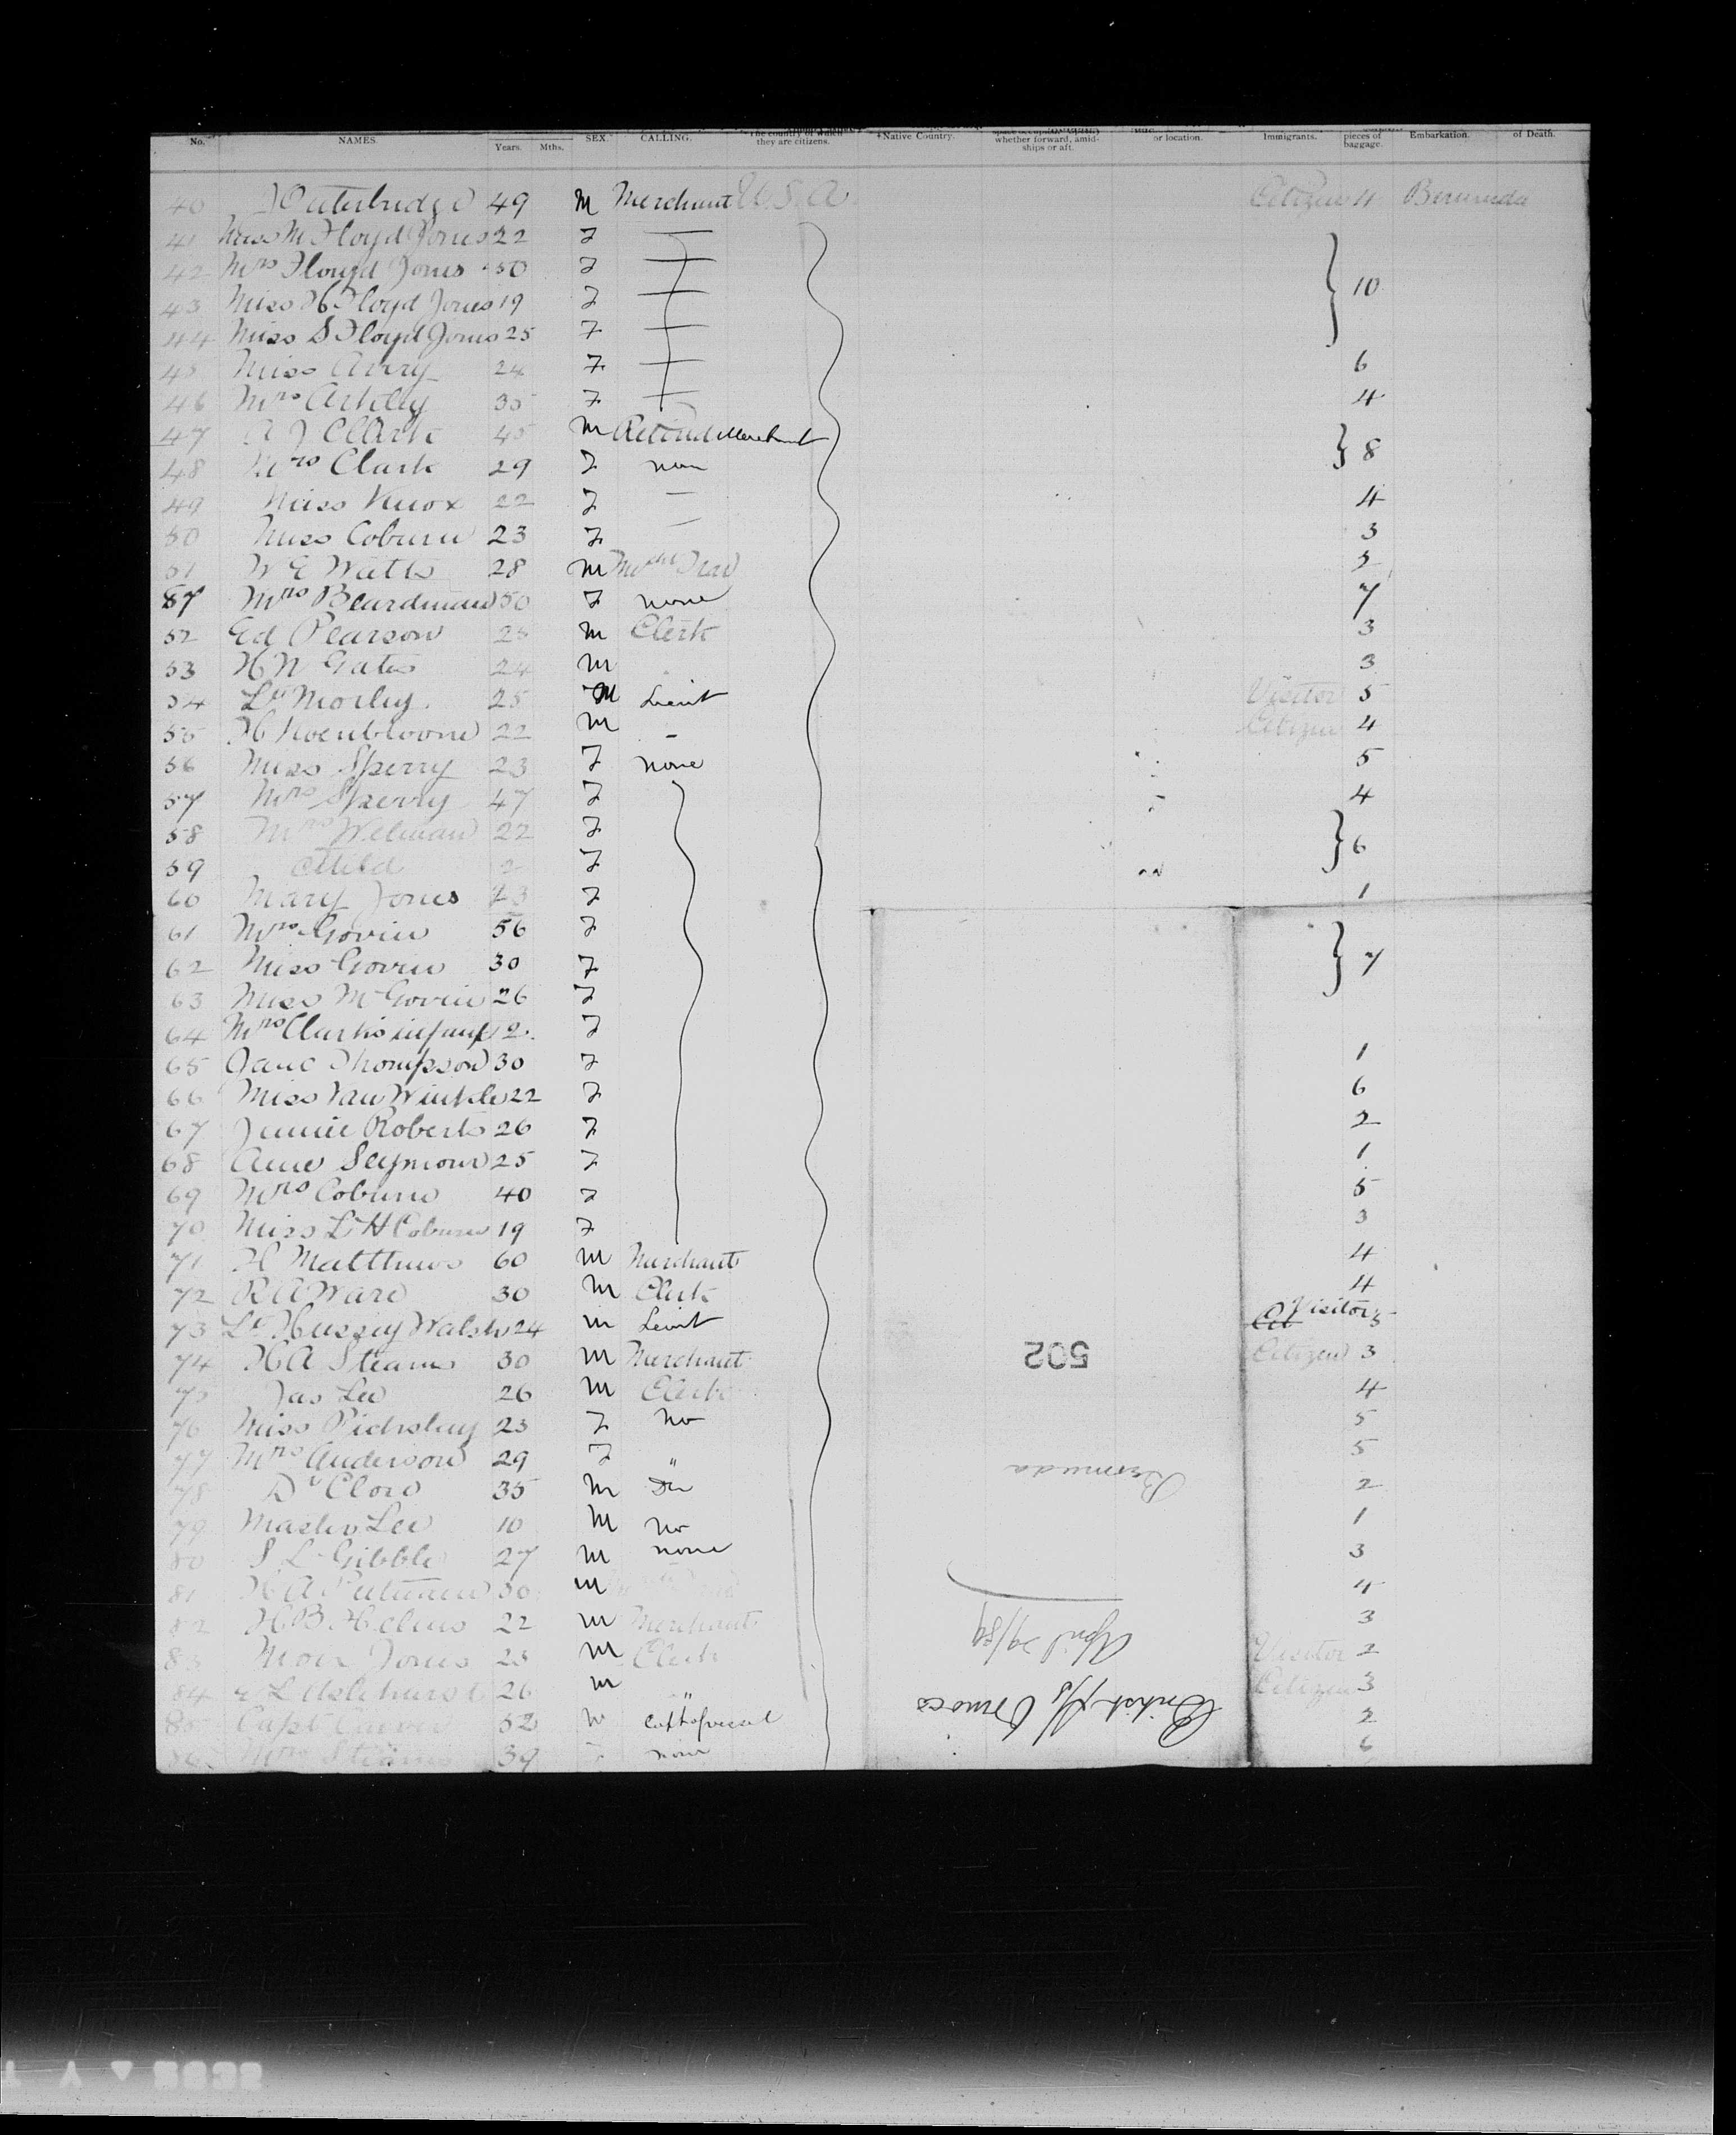 No. NAMES. Years. Mths. SEX. CALLING. The country of which they are citizens. *Native Country. whether forward, amidships or aft. or location. Immigrants. pieces of baggage. Embarkation. of Death.
40 Outerbridge 49 M Merchant U.S.A Citizen 4 Bermuda
41 Miss M Floyd Jones 22 F —
42 Mrs Floyd Jones 50 F — 10
43 Miss H Floyd Jones 19 F —
44 Miss S Floyd Jones 25 F —
45 Miss Avery 24 F — 6
46 Mrs 35 F — 4
47 A J Clark 45 M Retired Merchant
48 Mrs Clark 29 F non 8
49 Miss Knox 22 F — 4
50 Miss Coburn 23 F — 3
51 W E Watts 28 M
57 Mrs Beardman 50 F none 7
52 Ed Pearson 25 M Clerk 3
53 H N Gates 24 M 3
54 Lt Morley 25 M Lieut Visitor 5
55 22 M – Citizen 4
56 Miss Sperry 23 F none 5
57 Mrs Sperry 47 F 4
58 Mrs Welman 22 F
59 Child 2 F 6
60 Mary Jones 23 F 1
61 Mrs Govin 56 F
62 Miss Govin 30 F 7
63 Miss M Govin 26 F
64 Mrs Clarks infant 2 F
65 Jane Thompson 30 F 1
66 Miss Van Winkle 22 F 6
67 Jennie Roberts 26 F 2
68 Anne Seymour 25 F 1
69 Mrs Coburn 40 F 5
70 Miss L H Coburn 19 F 3
71 H Matthews 60 M Merchant 4
72 R A Ward 30 M Clerk 4
73 Lt Hussey Walsh 24 M Lieut Cit Visitor 5
74 H A Stearns 30 M Merchant Citizen 3
75 Jas Lee 26 M Clerk 4
76 Miss 23 F no 5
77 Mrs Anderson 29 F " 5
78 Dr 35 M Dr 2
79 Master Lee 10 M no 1
80 S L Gibble 27 M none 3
81 H A Putnam 30 M 4
82 H B 22 M Merchant 3
83 Jones 25 M Clerk Visitor 2
84 L Ashhurst 26 M " Citizen 3
85 Capt Carver 52 M Capt of vessel 2
86 Mrs Stearns 39 F none 6
502
Bermuda
April 29/89
British S/S Orinoco